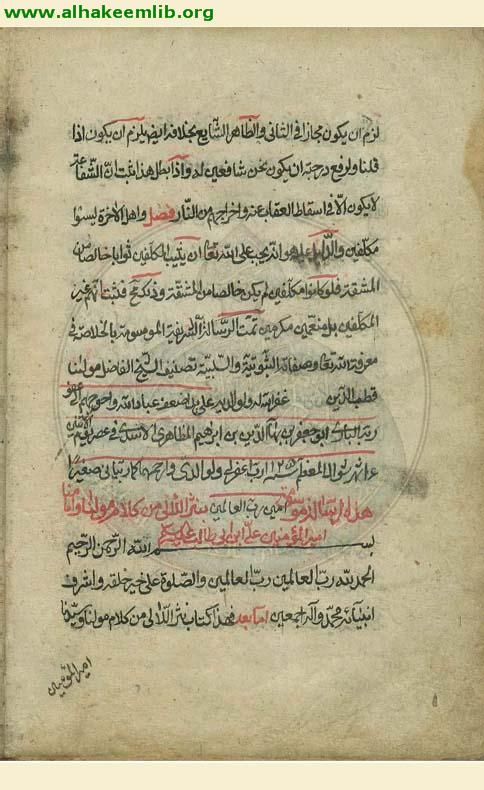 www.alhakeemlib.org
لزم ان يكون مجازا في الثاني والظاهر الشايع بخلافه ايضا يلزم ان يكون اذا
قلنا ولرفع درجته ان يكون نحن شافعين له واذا بطل هذا ثبت ان الشفاعة
لا يكون الا في اسقاط العقاب عنه واخراجهم من النار فصل واهل الاخرة ليسوا
مكلفين والدليل عليه هو انه يجب على الله تعالى ان يثيب المكلفين ثوابا خالصا من
المشقة فلو كانوا مكلفين لم يكن خالصا من المشقة وذلك فثبت انهم غير
المكلفين بل منعمين مكرمين تمت الرسالة الشريفة الموسومة بالخلاصة في
معرفة الله تعالى وصفاته الثبوتية والسلبية تصنيف الشيخ الفاضل مولنا
قطب الدين غفر الله له ولوالديه على يد اضعف عباد الله واحوجهم الى عفو
ربه البارى بن بهاء الدين بن ابراهيم المظاهرى الاسدى في عصر يوم الاثنين
شهر شوال المعظم سنة رب اغفر لي ولوالدي وارحمهما كما ربياني صغيرا
هذه الرسالة موسوم امين رب العالمين نثر اللآلي من كلام مولينا وامامنا
امير المؤمنين علي ابن ابي طالب
بسم الله الرحمن الرحيم
الحمد لله رب العالمين رب العالمين والصلوة على خير خلقه واشرف
انبيائه محمد وآله اجمعين اما بعد فهذا كتاب نثر اللآلي من كلام مولينا وسيدنا
امير المؤمنين